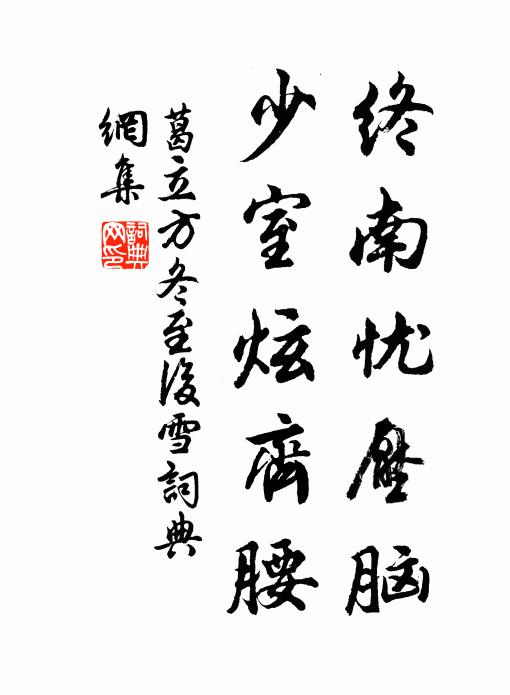 终南忧压脑
少室炫齊腰
葛立方冬至後雪詞典
網集
詞典网印